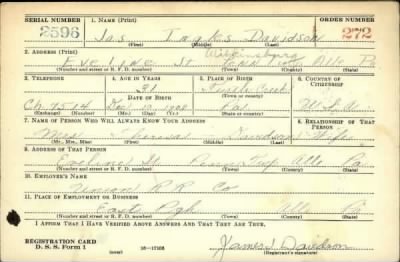 SERIAL NUMBER 1. NAME (Print) ORDER NUMBER
2596 Jas Davidson 272
(First) (Middle) (Last)
2. ADDRESS (Print) Wilkinsburg
EVELINE St PENN Twp All Pa
(Number and street or R. F. D. number) (Town) (County) (State)
3. TELEPHONE 4. AGE IN YEARS 5. PLACE OF BIRTH 6. COUNTRY OF CITIZENSHIP
31 Turtle Creek
DATE OF BIRTH
Ch. 7514 Dec Pa. U.S.A.
(Exchange) (Number) (Mo.) (Day) (Yr.) (State or country)
7. NAME OF PERSON WHO WILL ALWAYS KNOW YOUR ADDRESS 8. RELATIONSHIP OF THAT PERSON
Mrs Theresa Davidson Wife
(Mr., Mrs., Miss) (First) (Middle) (Last)
9. ADDRESS OF THAT PERSON
Eveline St Penn Twp Alle Pa
(Number and street or R. F. D. number) (Town) (County) (State)
10. EMPLOYER'S NAME
Union R.R. Co
11. PLACE OF EMPLOYMENT OR BUSINESS
East Pgh All Pa
(Number and street or R. F. D. number) (Town) (County) (State)
I AFFIRM THAT I HAVE VERIFIED ABOVE ANSWERS AND THAT THEY ARE TRUE.
REGISTRATION CARD
D. S. S. Form 1 (over) 16—17105 James Davidson
(Registrant's signature)